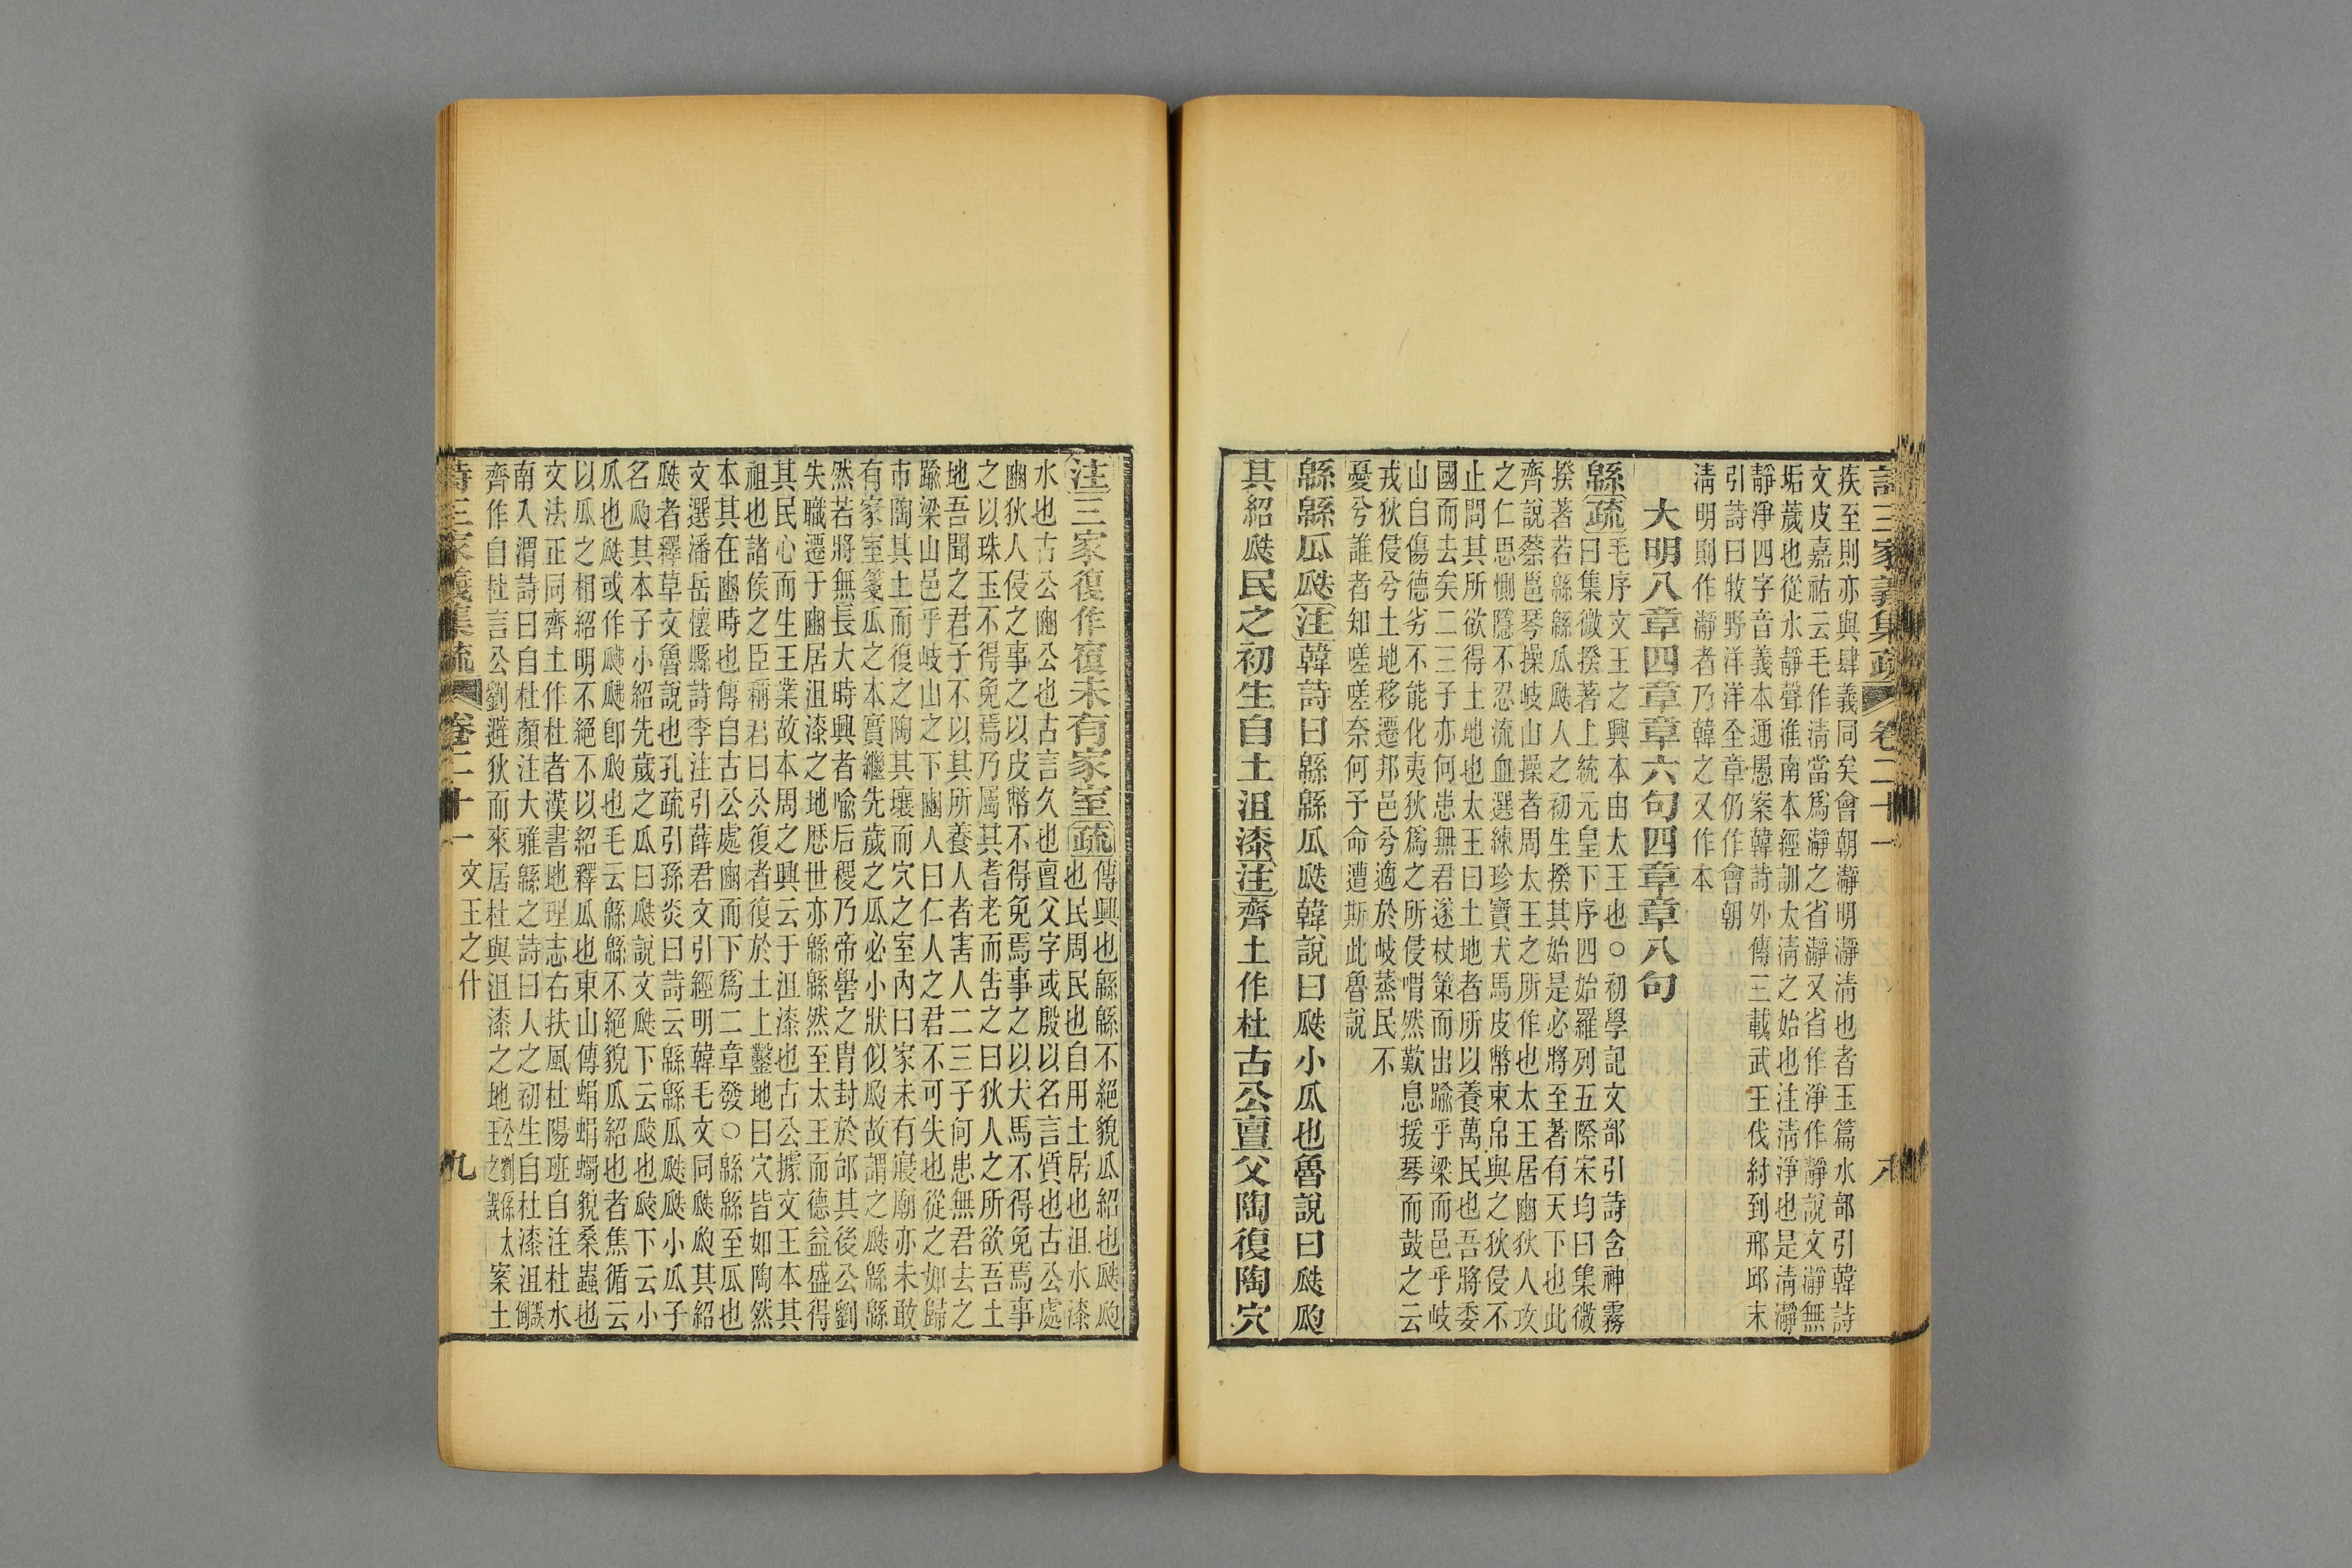 詩三家義集疏 卷二十一
疾至則亦與肆義同矣會朝瀞明瀞清也者玉篇水部引韓詩
文皮嘉祐云毛作清當爲瀞之省瀞又省作淨作靜說文瀞無
垢薉也從水靜聲淮南本經訓太清之始也注清淨也是清瀞
靜淨四字音義本通愚案韓詩外傳三載武王伐紂到邢邱末
引詩曰牧野洋洋全章仍作會朝
清明則作瀞者乃韓之又作本
大明八章四章章六句四章章八句
緜疏毛序文王之興本由太王也○初學記文部引詩含神霧
曰集微揆著上統元皇下序四始羅列五際宋均曰集微
揆著若緜緜瓜瓞人之初生揆其始是必將至著有天下也此
齊說蔡邕琴操岐山操者周太王之所作也太王居豳狄人攻
之仁思惻隱不忍流血選練珍寶犬馬皮幣束帛與之狄侵不
止問其所欲得土地也太王曰土地者所以養萬民也吾將委
國而去矣二三子亦何患無君遂杖策而出踰乎梁而邑乎岐
山自傷德劣不能化夷狄爲之所侵喟然歎息援琴而鼓之云
戎狄侵兮土地移遷邦邑兮適於岐蒸民不
憂兮誰者知嗟嗟奈何予命遭斯此魯說
緜緜瓜瓞注韓詩曰緜緜瓜瓞韓說曰瓞小瓜也魯說曰瓞瓝
其紹瓞民之初生自土沮漆注齊土作杜古公亶父陶復陶穴
注三家復作覆未有家室疏傳興也緜緜不絕貌瓜紹也瓞瓝
也民周民也自用土居也沮水漆
水也古公豳公也古言久也亶父字或殷以名言質也古公處
豳狄人侵之事之以皮幣不得免焉事之以犬馬不得免焉事
之以珠玉不得免焉乃屬其耆老而告之曰狄人之所欲吾土
地吾聞之君子不以其所養人者害人二三子何患無君去之
踰梁山邑乎岐山之下豳人曰仁人之君不可失也從之如歸
市陶其土而復之陶其壤而穴之室內曰家未有寢廟亦未敢
有家室箋瓜之本實繼先歲之瓜必小狀似瓝故謂之瓞緜緜
然若將無長大時興者喻后稷乃帝嚳之冑封於邰其後公劉
失職遷于豳居沮漆之地厯世亦緜緜然至太王而德益盛得
其民心而生王業故本周之興云于沮漆也古公據文王本其
祖也諸侯之臣稱君曰公復者復於土上鑿地曰穴皆如陶然
本其在豳時也傳自古公處豳而下爲二章發○緜緜至瓜也
文選潘岳懷縣詩李注引薛君文引經明韓毛文同瓞瓝其紹
瓞者釋草文魯說也孔疏引孫炎曰詩云緜緜瓜瓞瓞小瓜子
名瓝其本子小紹先歲之瓜曰瓞說文瓞下云㼎也㼎下云小
瓜也瓞或作㼎㼎卽瓝也毛云緜緜不絕貌瓜紹也者焦循云
以瓜之相紹明不絕不以紹釋瓜也東山傳蜎蜎蠋貌桑蟲也
文法正同齊土作杜者漢書地理志右扶風杜陽班自注杜水
南入渭詩曰自杜顏注大雅緜之詩曰人之初生自杜漆沮
齊作自杜言公劉避狄而來居杜與沮漆之地 案土
詩三家義集疏 卷二十一 文王之什 九